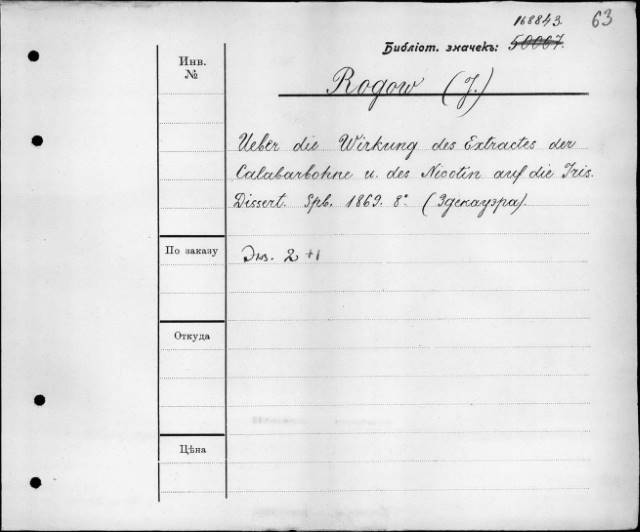 168843. 63
Библіот. значекъ: 50067.
Инв.
№
Rogow (J.)
Ueber die Wirkung des Extractes der
Calabarbohne u. des Nicotin auf die Iris.
Dissert. Spb. 1869. 8° (Эдекауэра).
По заказу
Экз. 2 +1
Откуда
Цѣна